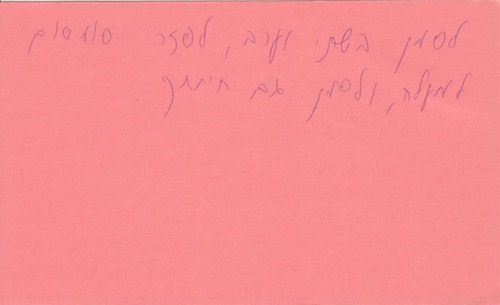 לסמן בשתי וערב, לפזר סומסום
למעלה, ולסמן גם חיתוך